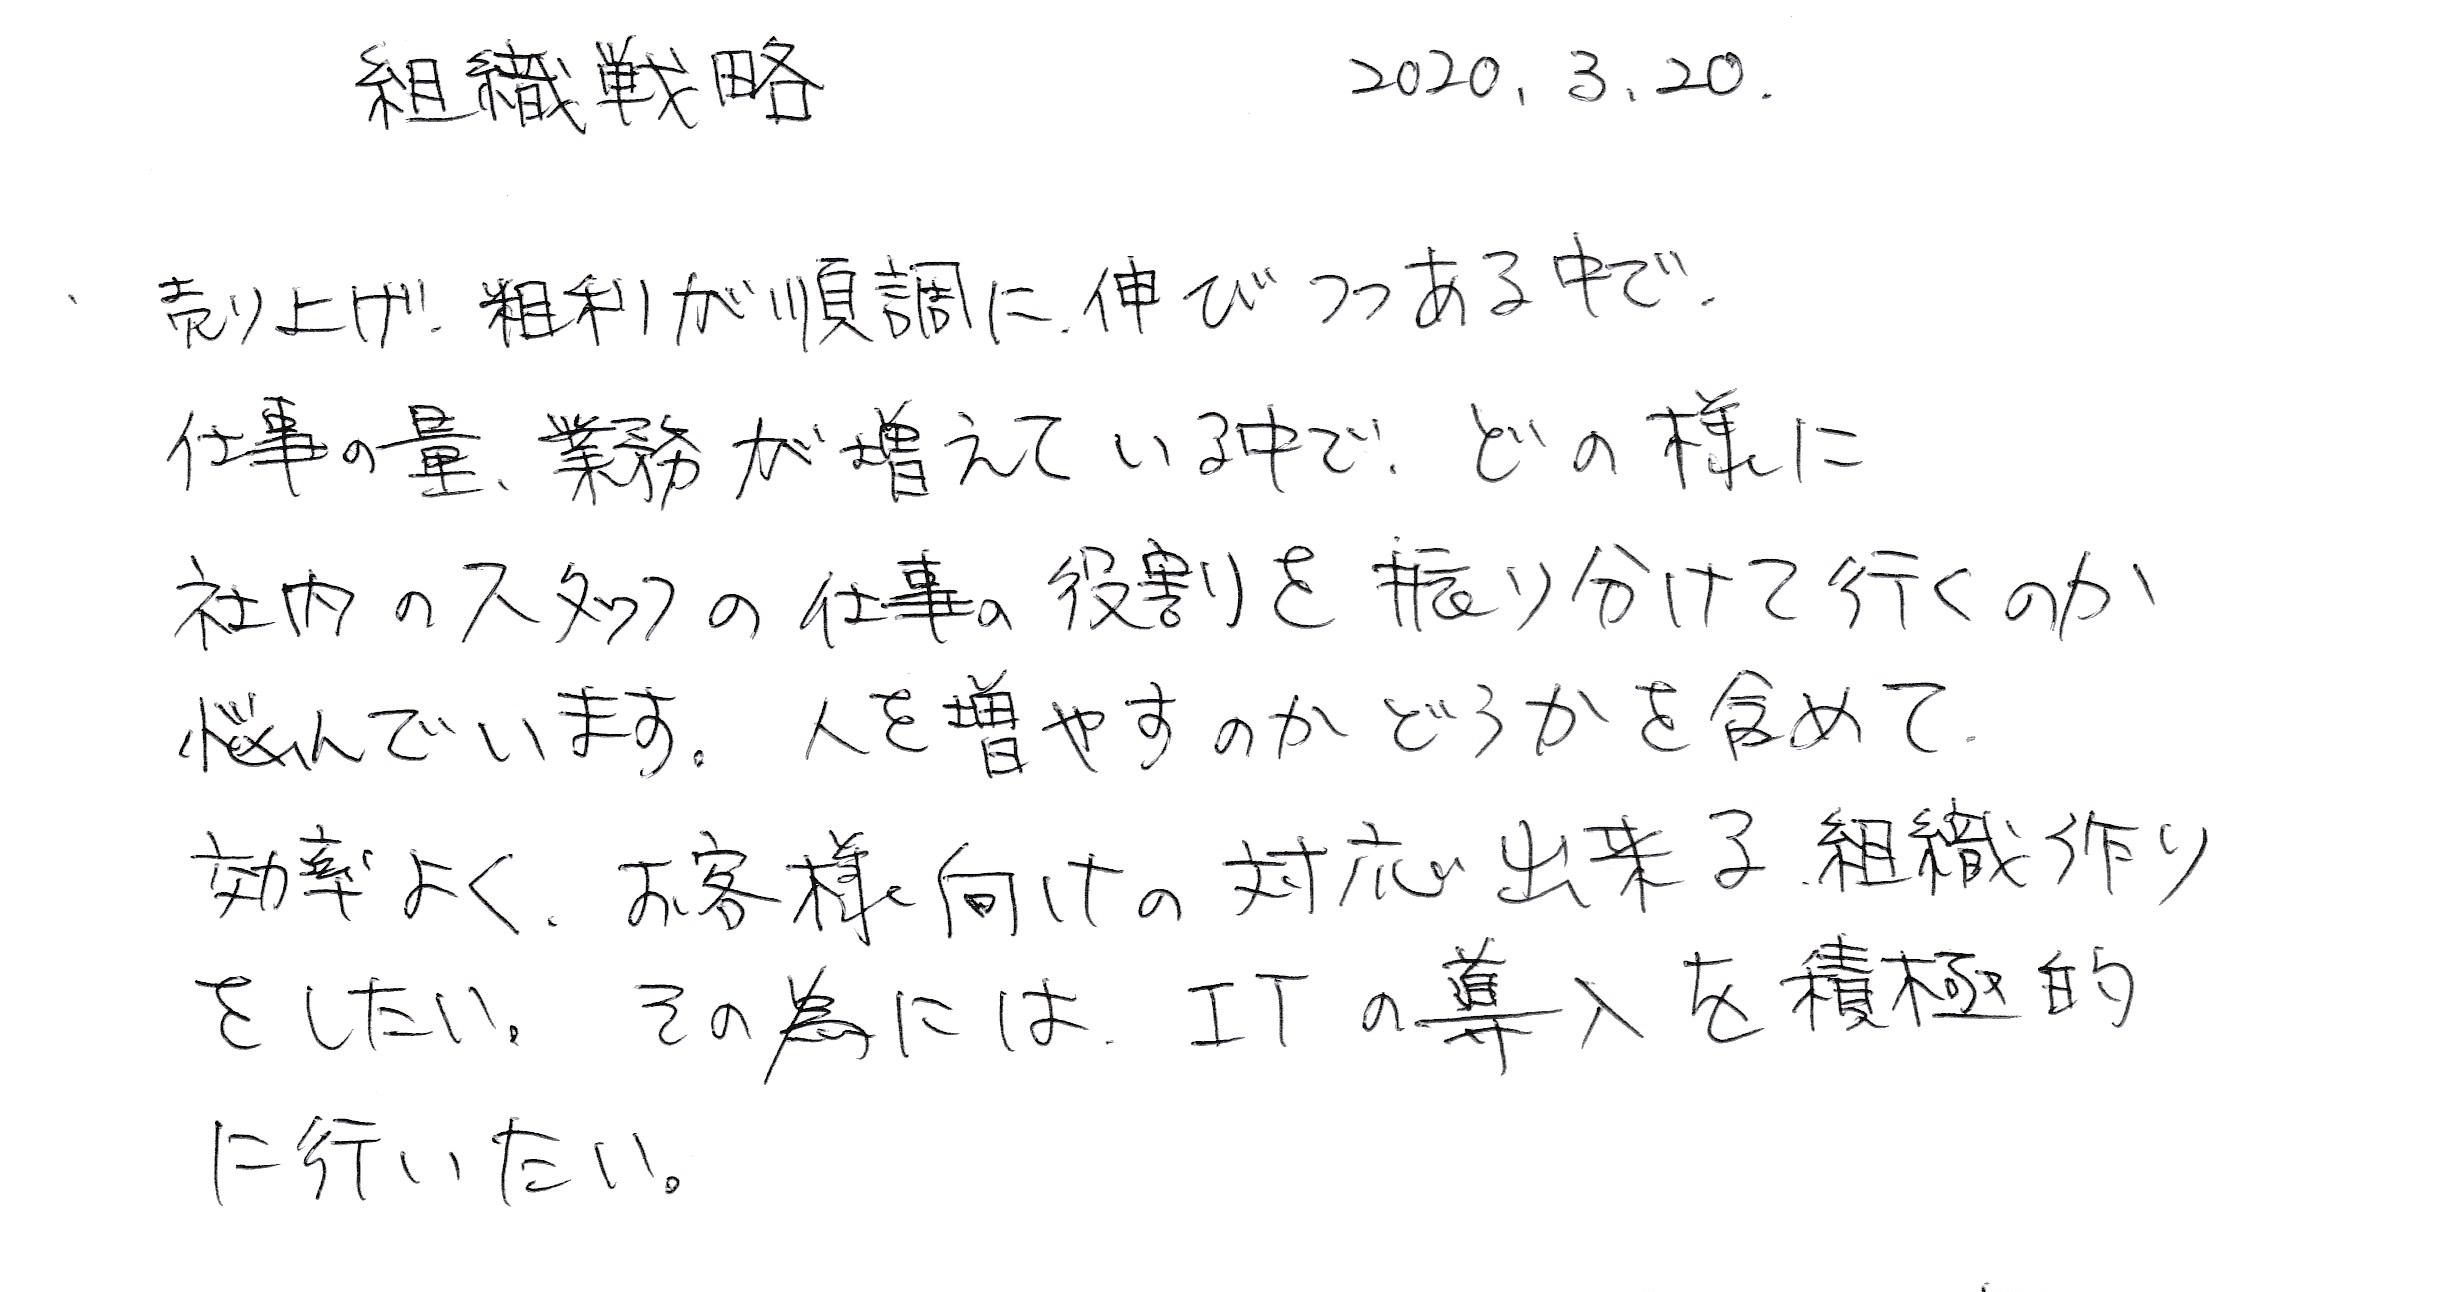 組織戦略 2020.3.20.
売り上げ、粗利が順調に、伸びつつある中で、
仕事の量、業務が増えている中で、どの様に
社内のスタッフの仕事の役割りを振り分けて行くのか
悩んでいます。人を増やすのかどうかを含めて、
効率よく、お客様向けの対応出来る、組織作り
をしたい。その為には、ITの導入を積極的
に行いたい。